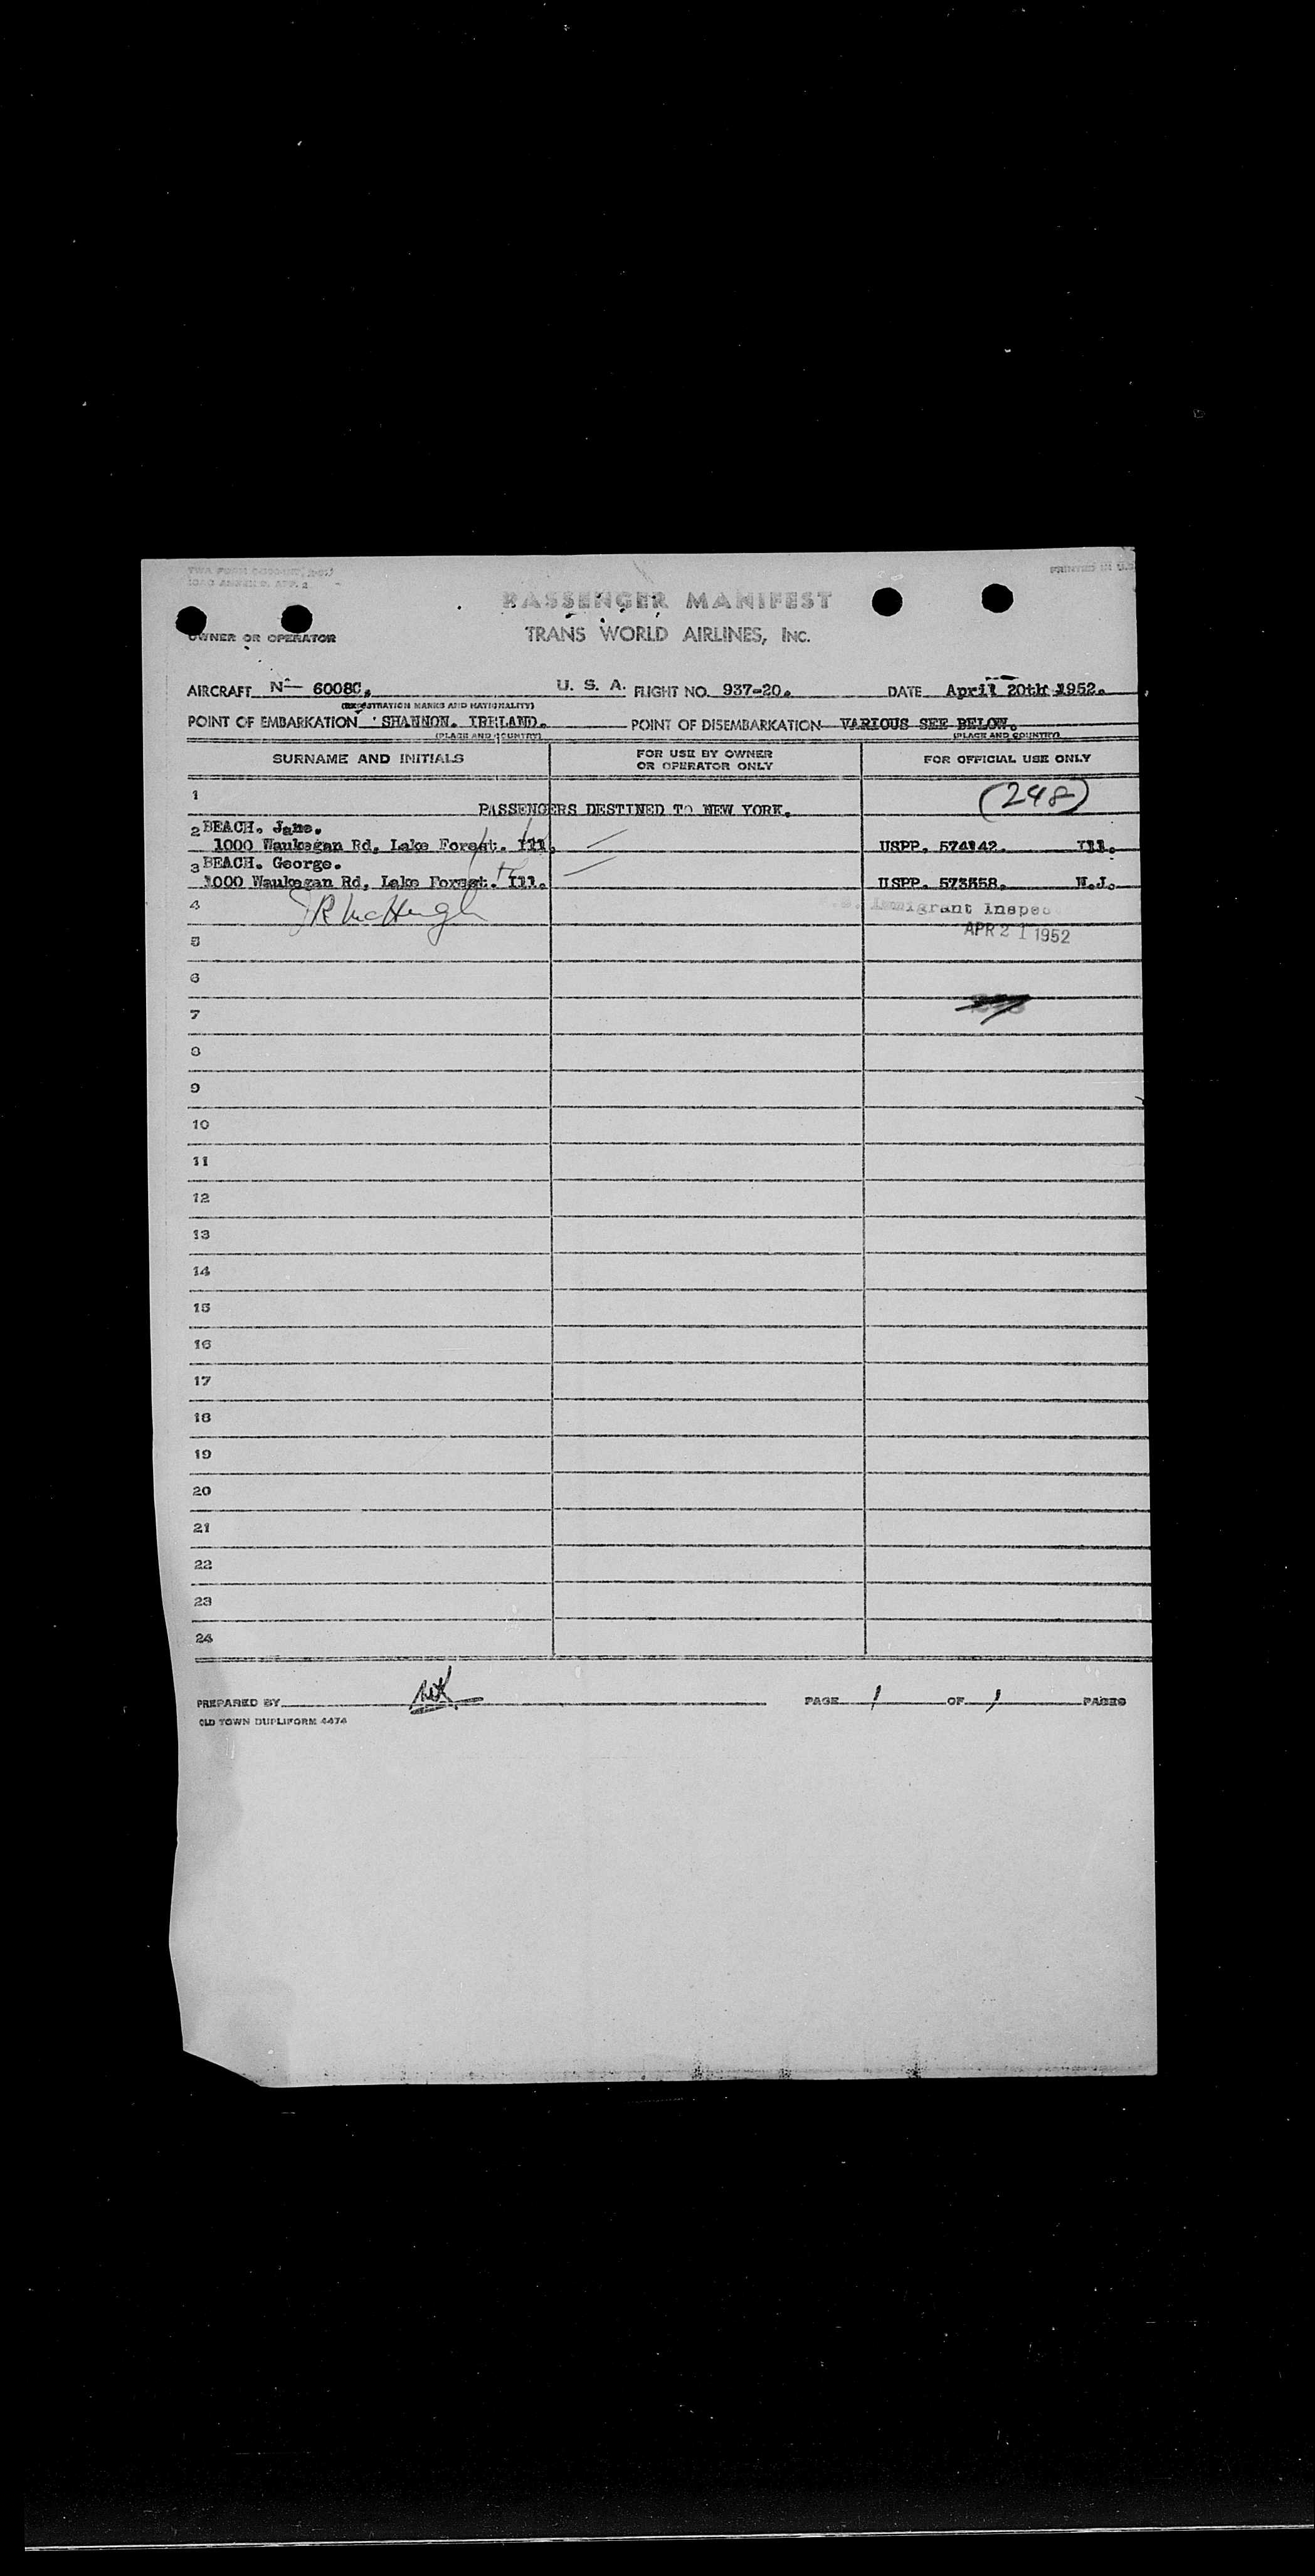 PRINTED IN U.S.
PASSENGER MANIFEST
OWNER OR OPERATOR TRANS WORLD AIRLINES, INC.
AIRCRAFT N- 6008C. U. S. A. FLIGHT NO. 937-20. DATE April 20th 1952.
(REGISTRATION MARKS AND NATIONALITY)
POINT OF EMBARKATION SHANNON. IRELAND. POINT OF DISEMBARKATION VARIOUS SEE BELOW.
(PLACE AND COUNTRY) (PLACE AND COUNTRY)
SURNAME AND INITIALS FOR USE BY OWNER OR OPERATOR ONLY FOR OFFICIAL USE ONLY
1 (248)
PASSENGERS DESTINED TO NEW YORK.
2 BEACH. Jane.
1000 Waukegan Rd, Lake Forest. Ill. USPP. 574142. Ill.
3 BEACH. George.
1000 Waukegan Rd, Lake Forest. Ill. USPP. 573558. N.J.
4 JR McHugh Immigrant Inspec
5 APR 21 1952
6
7
8
9
10
11
12
13
14
15
16
17
18
19
20
21
22
23
24
PREPARED BY PAGE 1 OF 1 PAGES
OLD TOWN DUPLIFORM 4474